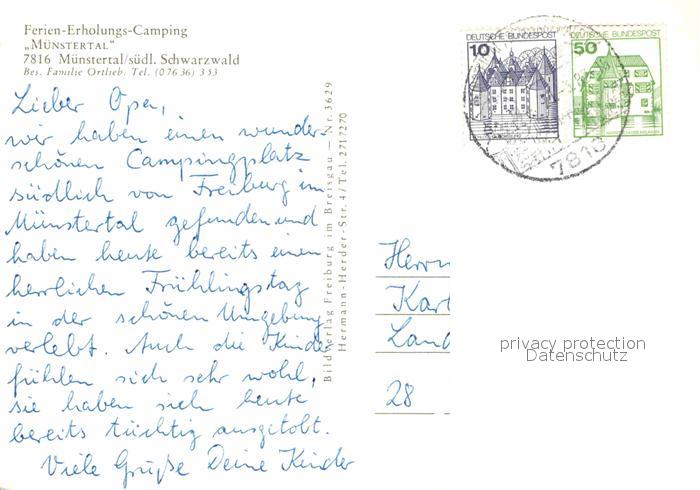 Ferien-Erholungs-Camping
„MÜNSTERTAL“
7816 Münstertal/südl. Schwarzwald
Bes. Familie Ortlieb. Tel. (07636) 353
Lieber Opa,
wir haben einen wunder-
schönen Campingplatz
südlich von Freiburg im
Münstertal gefunden und
haben heute bereits einen
herrlichen Frühlingstag
in der schönen Umgebung
verlebt. Auch die Kinder
fühlen sich sehr wohl,
sie haben sich heute
bereits tüchtig ausgetobt.
Viele Grüße Deine Kinder
Bildverlag Freiburg im Breisgau — Nr. 3629
Hermann-Herder-Str. 4/Tel. 2717270
DEUTSCHE BUNDESPOST
10
DEUTSCHE BUNDESPOST
50
7816
Herrn
Karl
Land
28
privacy protection
Datenschutz